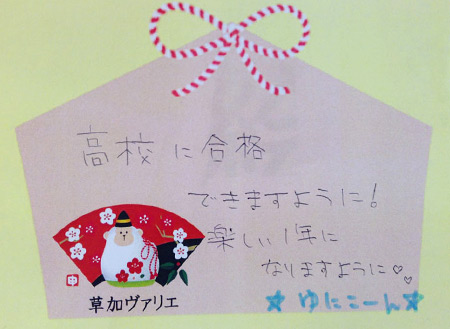 高校に合格
できますように!
楽しい1年に
なりますように♡♡
★ゆにこーん★
申
草加ヴァリエ